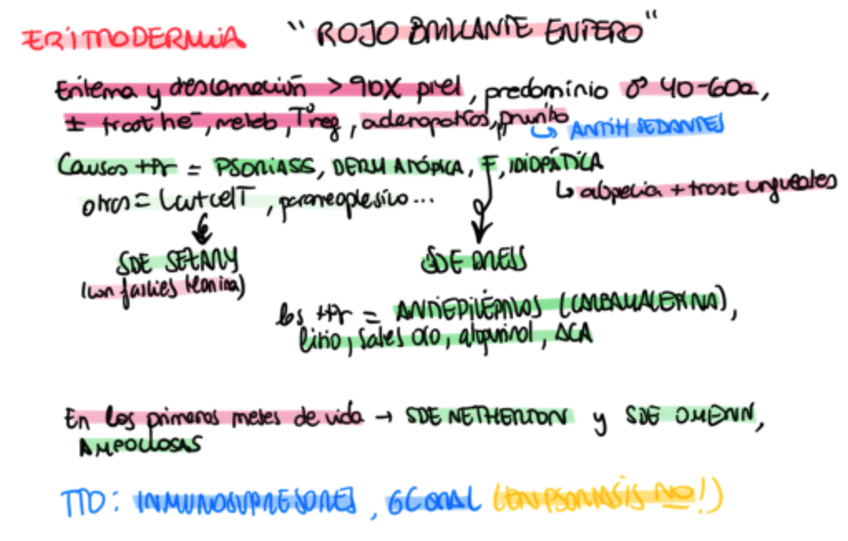 ERITRODERMIA "ROJO BRILLANTE ENTERO"
Eritema y descamación > 90% piel, predominio ♂ 40-60a,
± trast he⁻, metab, Tªreg, adenopatías, prurito
↳ ANTIH SEDANTES
Causas +fr = PSORIASIS, DERM ATÓPICA, F, IDIOPÁTICA
↳ alopecia + trast ungueales
otros = L cut cel T, paraneoplésico...
SDE SEZARY
(con fascies leonina)
SDE DRESS
los +fr = ANTIEPILÉPTICOS (CARBAMACEPINA),
litio, sales oro, alopurinol, ACA
En los primeros meses de vida → SDE NETHERTON y SDE OMENN,
AMPOLLOSAS
TTO: INMUNOSUPRESORES, GC ORAL (EN PSORIASIS NO!)